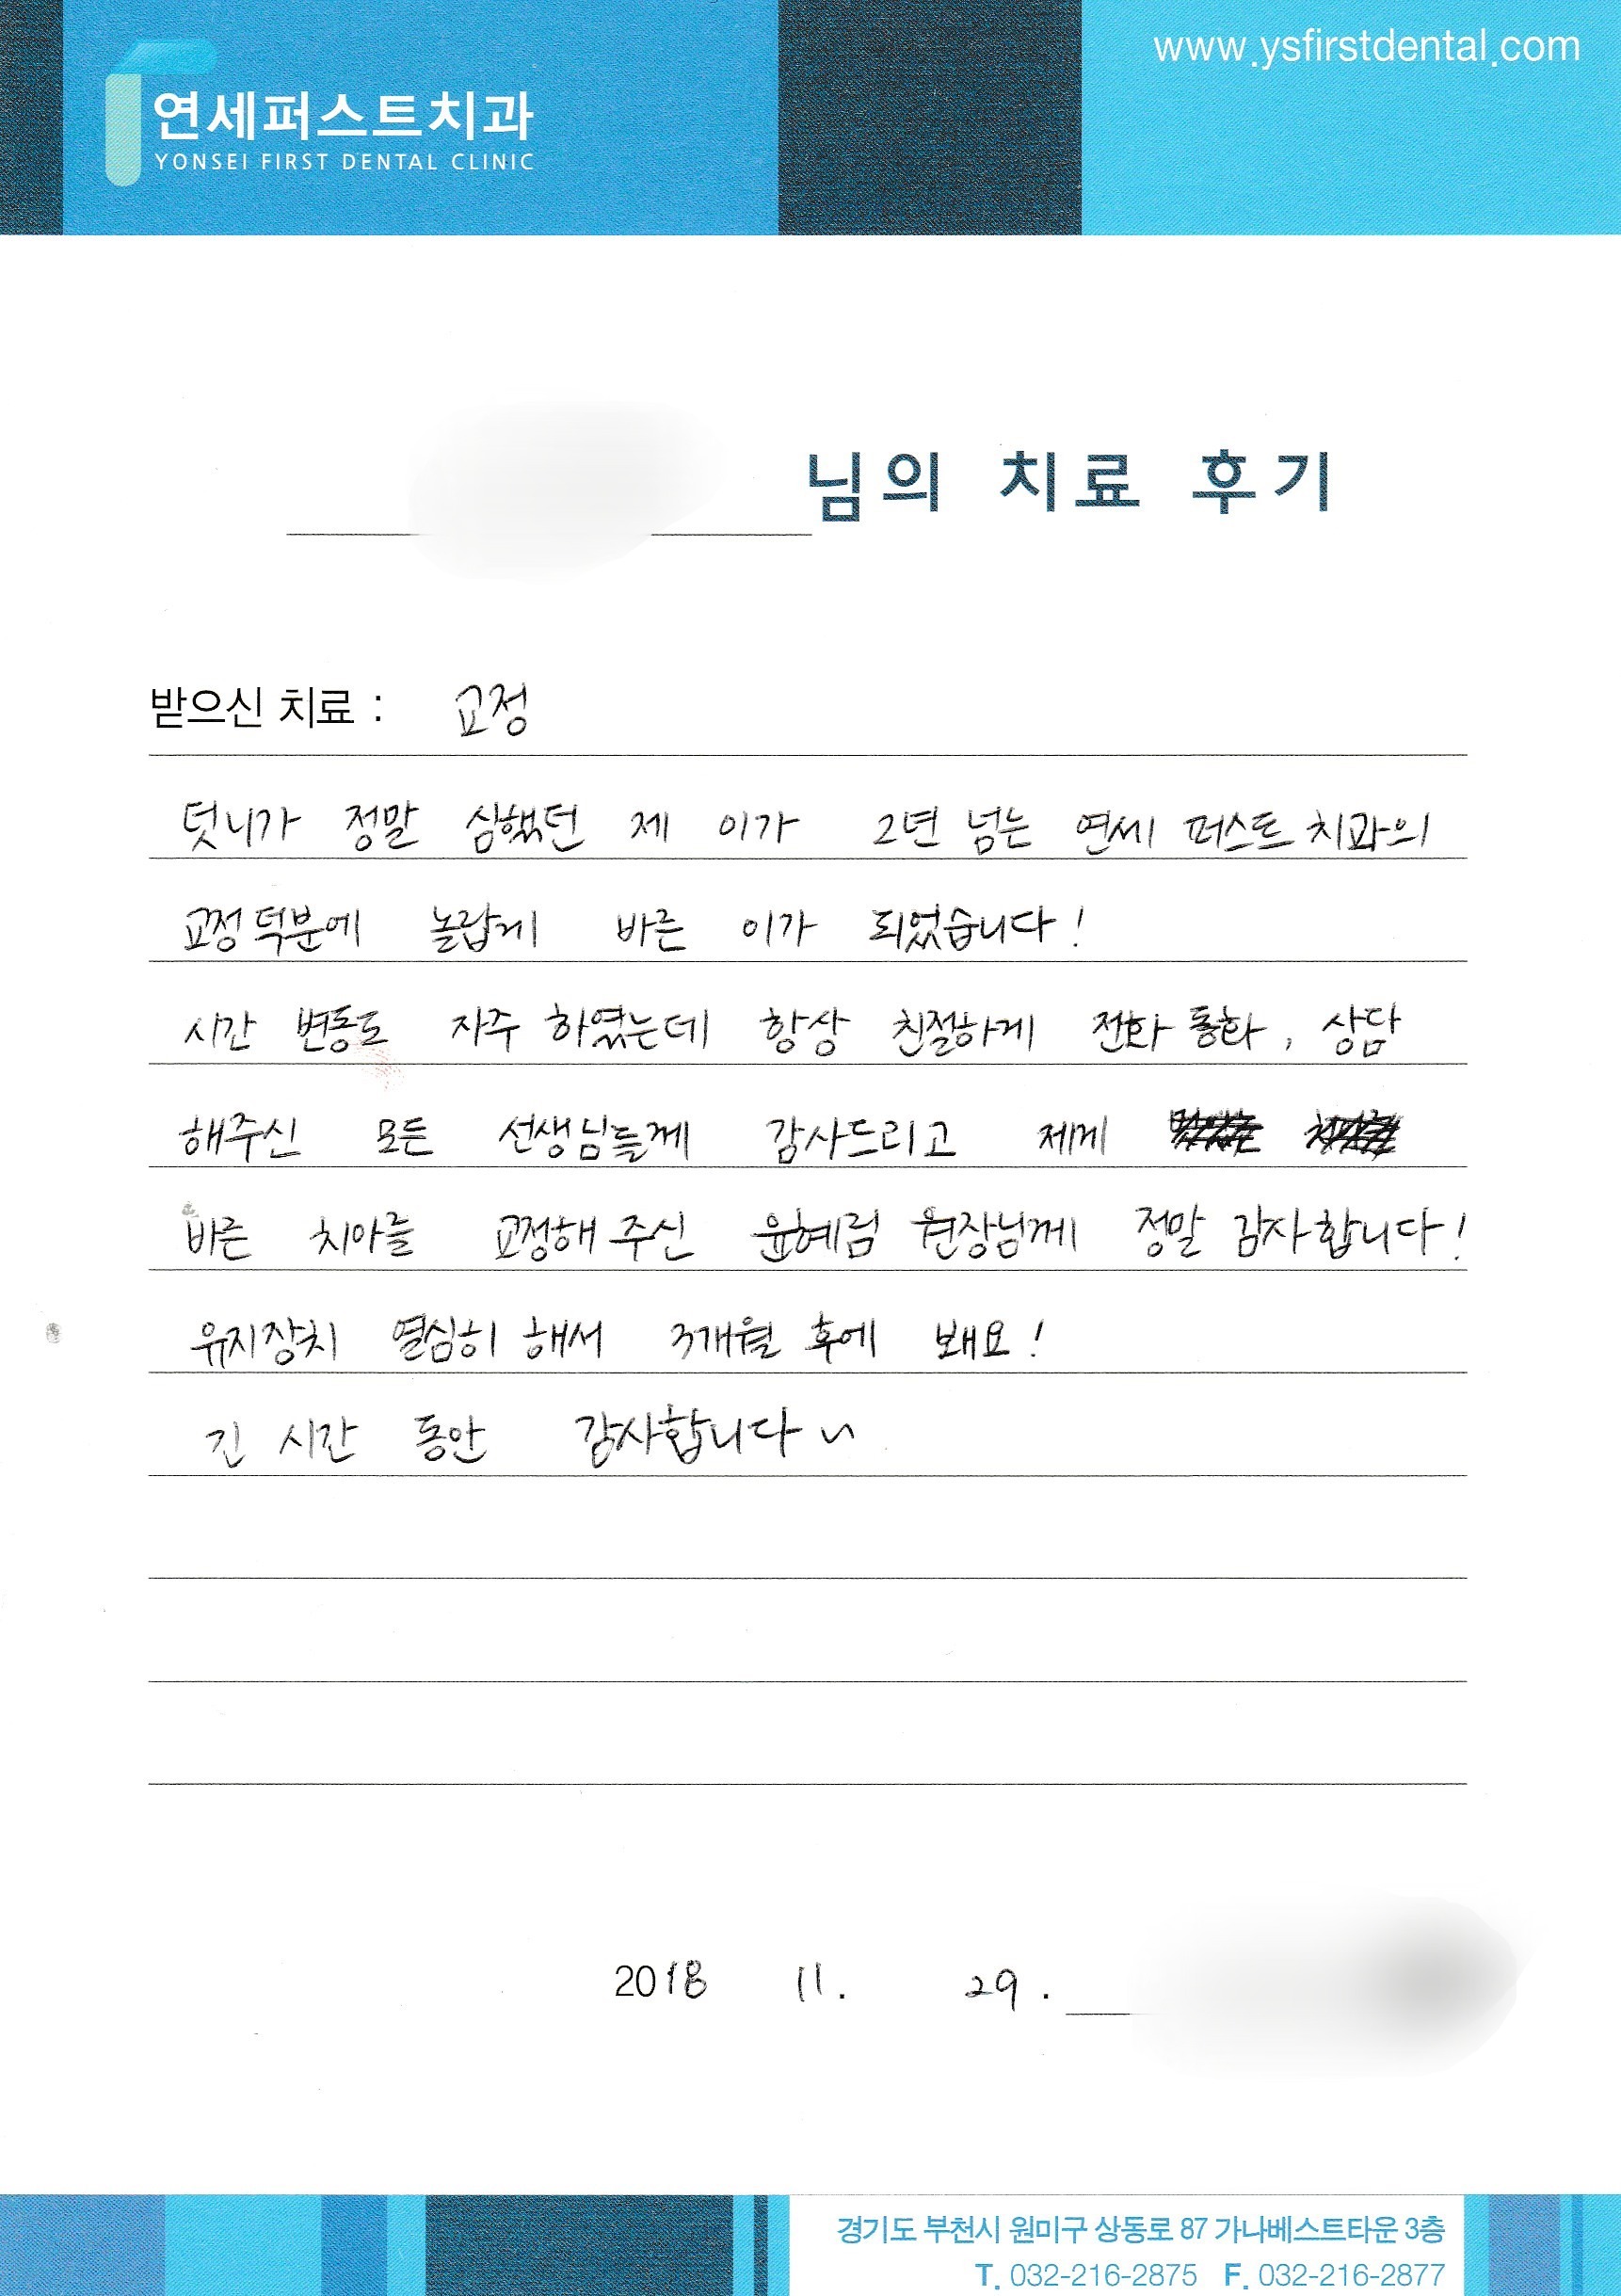 www.ysfirstdental.com
연세퍼스트치과
YONSEI FIRST DENTAL CLINIC
님의 치료 후기
받으신 치료 : 교정
덧니가 정말 심했던 제 이가 2년 넘는 연세 퍼스트 치과의
교정 덕분에 놀랍게 바른 이가 되었습니다!
시간 변동도 자주 하였는데 항상 친절하게 전화 통화, 상담
해주신 모든 선생님들께 감사드리고 제게
바른 치아를 교정해 주신 윤혜림 원장님께 정말 감사합니다!
유지장치 열심히 해서 3개월 후에 봬요!
긴 시간 동안 감사합니다~
2018 11. 29.
경기도 부천시 원미구 상동로 87 가나베스트타운 3층
T. 032-216-2875 F. 032-216-2877